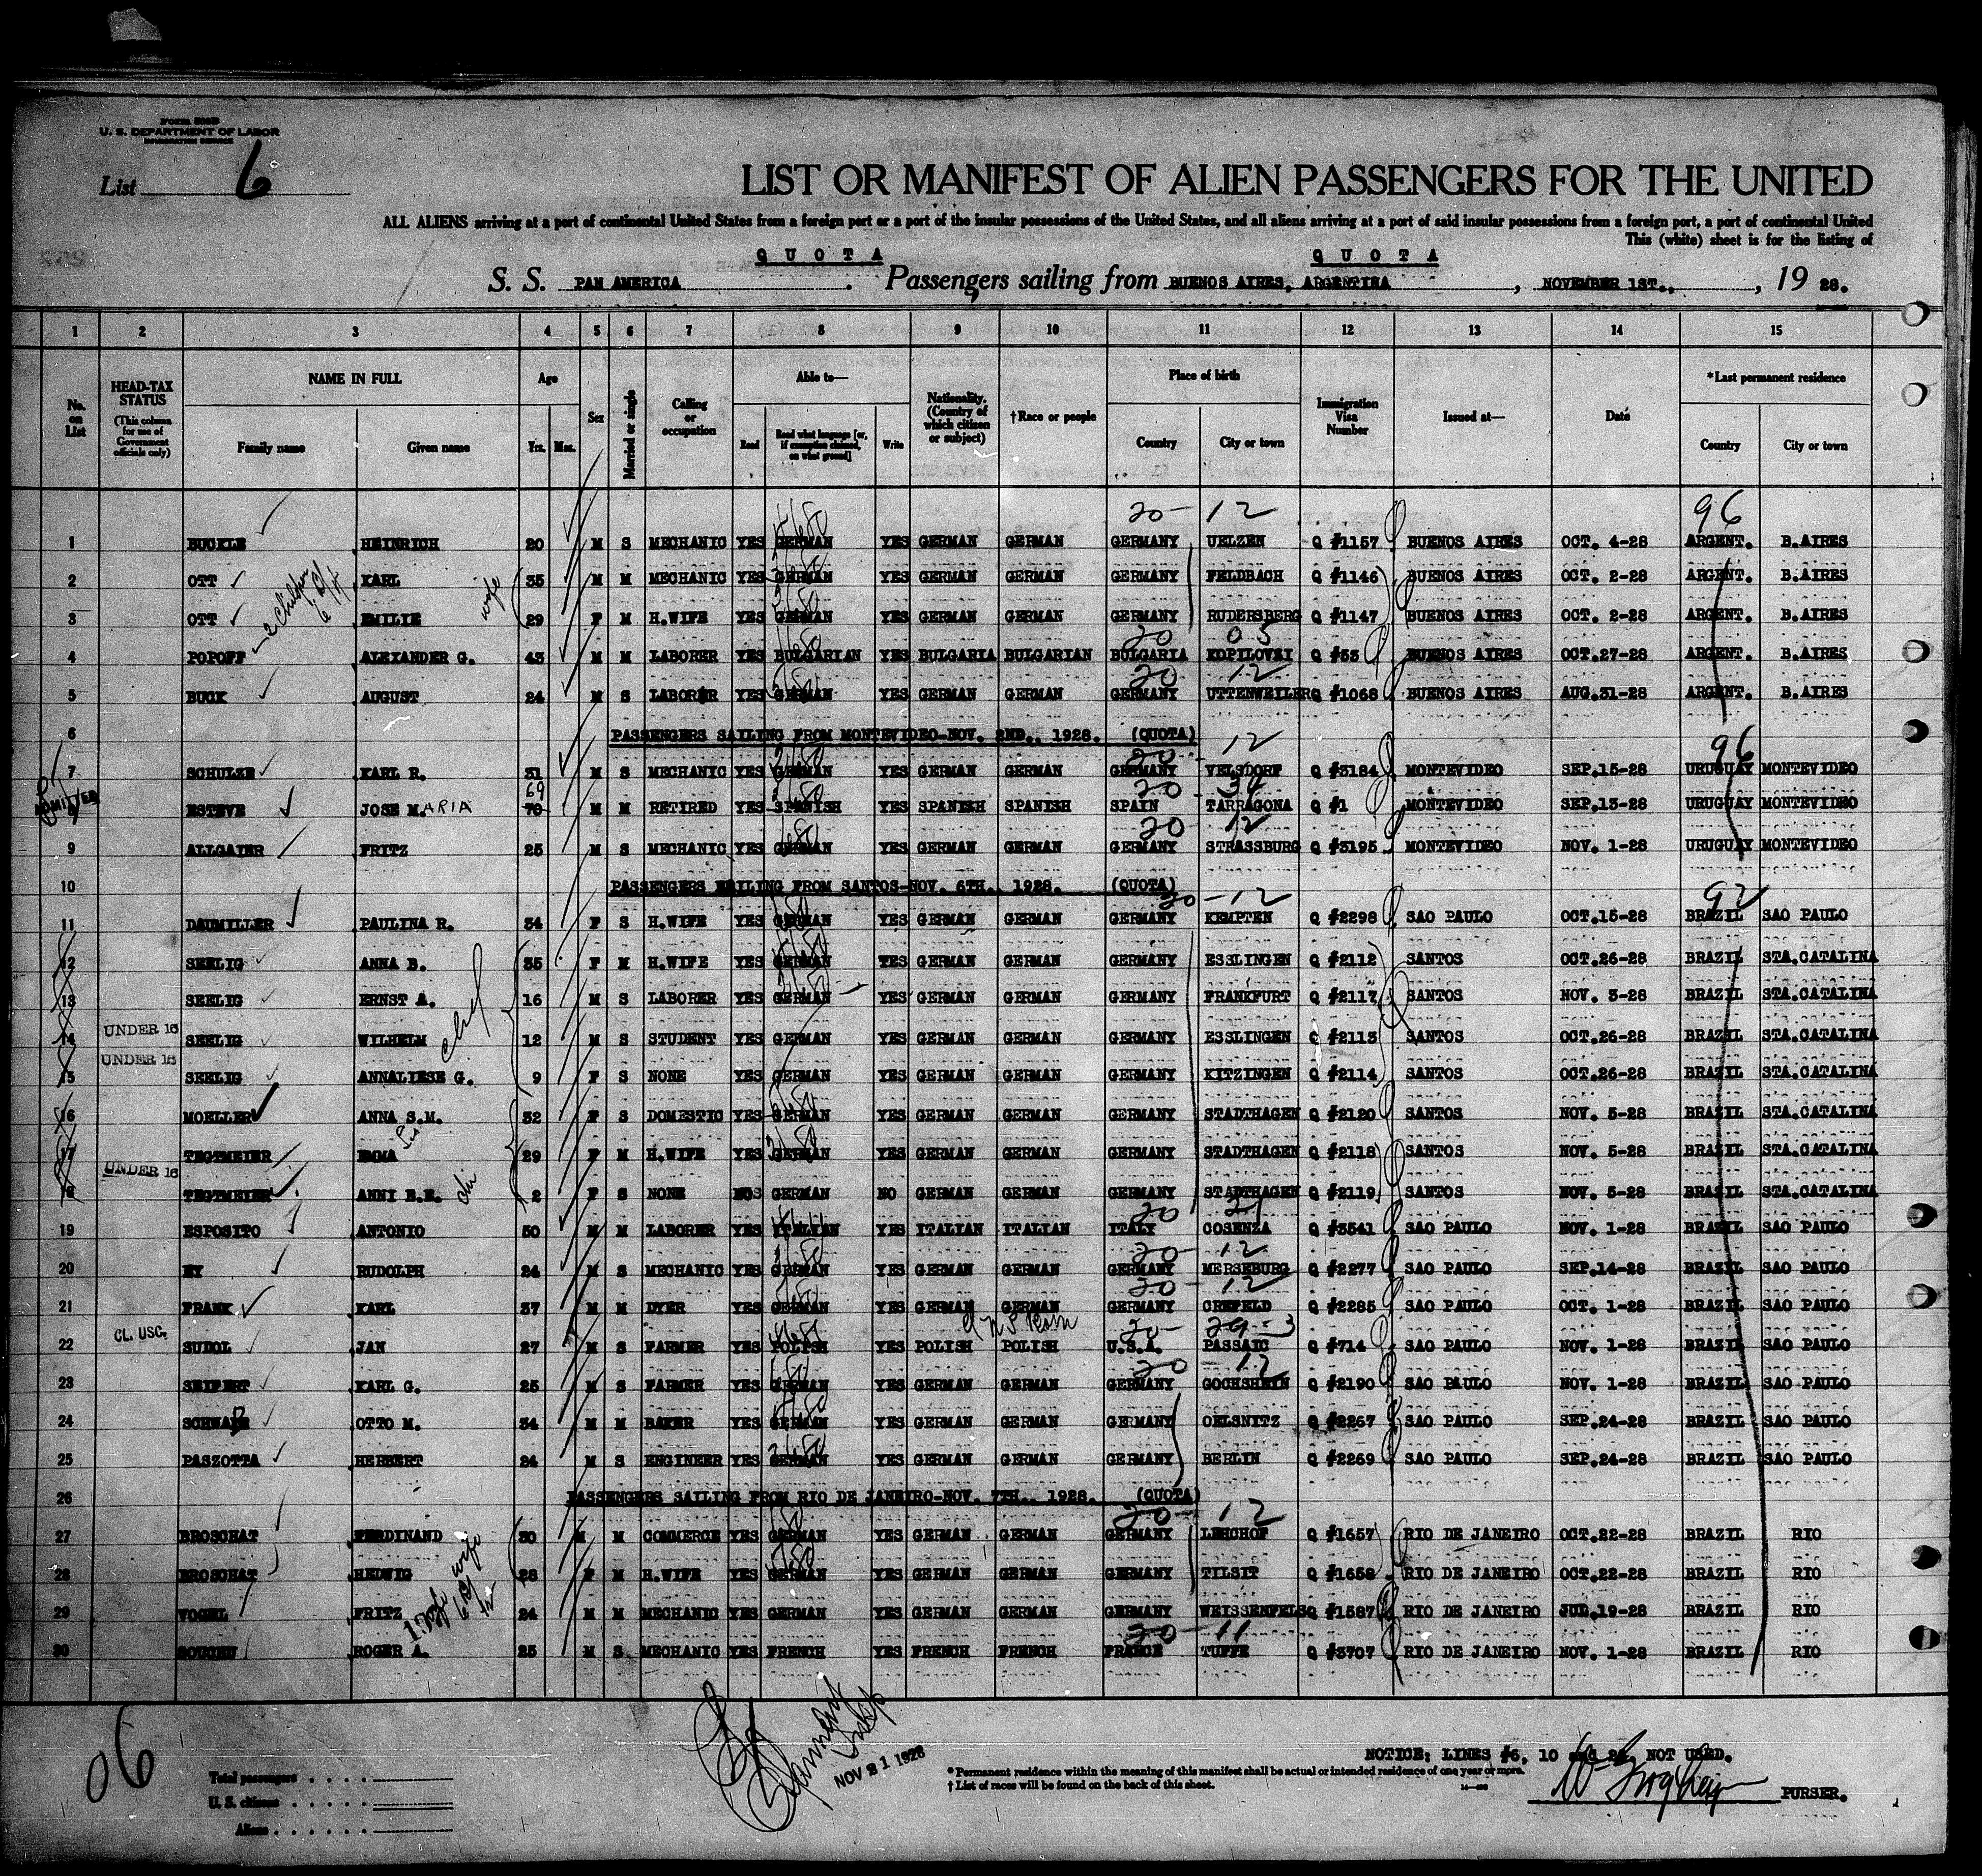 Form 500B
U. S. DEPARTMENT OF LABOR
IMMIGRATION SERVICE
List 6
LIST OR MANIFEST OF ALIEN PASSENGERS FOR THE UNITED
ALL ALIENS arriving at a port of continental United States from a foreign port or a port of the insular possessions of the United States, and all aliens arriving at a port of said insular possessions from a foreign port, a port of continental United
This (white) sheet is for the listing of
QUOTA QUOTA
S. S. PAN AMERICA. Passengers sailing from BUENOS AIRES, ARGENTINA, NOVEMBER 1ST., 19 28.
1 2 3 4 5 6 7 8 9 10 11 12 13 14 15
No. on List HEAD-TAX STATUS (This column for use of Government officials only) NAME IN FULL Family name Given name Age Yrs. Mos. Sex Married or single Calling or occupation Able to— Read Read what language [or, if exemption claimed, on what ground] Write Nationality. (Country of which citizen or subject) †Race or people Place of birth Country City or town Immigration Visa Number Issued at— Date *Last permanent residence Country City or town
20 - 12 96
1 BUCKLE HEINRICH 20 M S MECHANIC YES GERMAN YES GERMAN GERMAN GERMANY UELZEN Q #1157 BUENOS AIRES OCT. 4-28 ARGENT. B.AIRES
2 OTT KARL 35 M M MECHANIC YES GERMAN YES GERMAN GERMAN GERMANY FELDBACH Q #1146 BUENOS AIRES OCT. 2-28 ARGENT. B.AIRES
2 children wife
3 OTT EMILIE 29 F M H.WIFE YES GERMAN YES GERMAN GERMAN GERMANY RUDERSBERG Q #1147 BUENOS AIRES OCT. 2-28 ARGENT. B.AIRES
20 05
4 POPOFF ALEXANDER G. 43 M M LABORER YES BULGARIAN YES BULGARIA BULGARIAN BULGARIA KOPILOVZI Q #53 BUENOS AIRES OCT.27-28 ARGENT. B.AIRES
20 12
5 BUCK AUGUST 24 M S LABORER YES GERMAN YES GERMAN GERMAN GERMANY UTTENWEILER Q #1068 BUENOS AIRES AUG.31-28 ARGENT. B.AIRES
6 PASSENGERS SAILING FROM MONTEVIDEO-NOV. 2ND., 1928. (QUOTA)
20 12 96
7 SCHULZE KARL R. 31 M S MECHANIC YES GERMAN YES GERMAN GERMAN GERMANY VELSDORF Q #3184 MONTEVIDEO SEP.15-28 URUGUAY MONTEVIDEO
69 20 - 34
ADMITTED ESTEVE JOSE MARIA 70 M M RETIRED YES SPANISH YES SPANISH SPANISH SPAIN TARRAGONA Q #1 MONTEVIDEO SEP.13-28 URUGUAY MONTEVIDEO
20 12
9 ALLGAIER FRITZ 25 M S MECHANIC YES GERMAN YES GERMAN GERMAN GERMANY STRASSBURG Q #3195 MONTEVIDEO NOV. 1-28 URUGUAY MONTEVIDEO
10 PASSENGERS SAILING FROM SANTOS-NOV. 6TH., 1928. (QUOTA)
20 - 12 92
11 DAUMILLER PAULINA R. 34 F S H.WIFE YES GERMAN YES GERMAN GERMAN GERMANY KEMPTEN Q #2298 SAO PAULO OCT.15-28 BRAZIL SAO PAULO
12 SEELIG ANNA B. 35 F M H.WIFE YES GERMAN YES GERMAN GERMAN GERMANY ESSLINGEN Q #2112 SANTOS OCT.26-28 BRAZIL STA.CATALINA
13 SEELIG ERNST A. 16 M S LABORER YES GERMAN YES GERMAN GERMAN GERMANY FRANKFURT Q #2117 SANTOS NOV. 3-28 BRAZIL STA.CATALINA
UNDER 16
14 SEELIG WILHELM 12 M S STUDENT YES GERMAN YES GERMAN GERMAN GERMANY ESSLINGEN Q #2113 SANTOS OCT.26-28 BRAZIL STA.CATALINA
UNDER 16
15 SEELIG ANNALIESE G. 9 F S NONE YES GERMAN YES GERMAN GERMAN GERMANY KITZINGEN Q #2114 SANTOS OCT.26-28 BRAZIL STA.CATALINA
16 MOELLER ANNA S.M. 32 F S DOMESTIC YES GERMAN YES GERMAN GERMAN GERMANY STADTHAGEN Q #2120 SANTOS NOV. 5-28 BRAZIL STA.CATALINA
17 TEGTMEIER EMMA 29 F M H.WIFE YES GERMAN YES GERMAN GERMAN GERMANY STADTHAGEN Q #2118 SANTOS NOV. 5-28 BRAZIL STA.CATALINA
UNDER 16
18 TEGTMEIER ANNI E.E. 2 F S NONE NO GERMAN NO GERMAN GERMAN GERMANY STADTHAGEN Q #2119 SANTOS NOV. 5-28 BRAZIL STA.CATALINA
20 21
19 ESPOSITO ANTONIO 50 M M LABORER YES ITALIAN YES ITALIAN ITALIAN ITALY COSENZA Q #3541 SAO PAULO NOV. 1-28 BRAZIL SAO PAULO
20 - 12
20 NY RUDOLPH 24 M S MECHANIC YES GERMAN YES GERMAN GERMAN GERMANY MERSEBURG Q #2277 SAO PAULO SEP.14-28 BRAZIL SAO PAULO
20 - 12
21 FRANK KARL 37 M M DYER YES GERMAN YES GERMAN GERMAN GERMANY CREFELD Q #2285 SAO PAULO OCT. 1-28 BRAZIL SAO PAULO
CL. USC. 20 - 29-3
22 SUDOL JAN 27 M S FARMER YES POLISH YES POLISH POLISH U.S.A. PASSAIC Q #714 SAO PAULO NOV. 1-28 BRAZIL SAO PAULO
20 - 12
23 SEIFERT KARL G. 25 M S FARMER YES GERMAN YES GERMAN GERMAN GERMANY GOCHSHEIN Q #2190 SAO PAULO NOV. 1-28 BRAZIL SAO PAULO
24 OTTO M. 34 M M BAKER YES GERMAN YES GERMAN GERMAN GERMANY OELSNITZ Q #2267 SAO PAULO SEP.24-28 BRAZIL SAO PAULO
25 PASZOTTA HERBERT 24 M S ENGINEER YES GERMAN YES GERMAN GERMAN GERMANY BERLIN Q #2269 SAO PAULO SEP.24-28 BRAZIL SAO PAULO
26 PASSENGERS SAILING FROM RIO DE JANEIRO-NOV. 7TH., 1928. (QUOTA)
20 - 12
27 BROSCHAT FERDINAND 30 M M COMMERCE YES GERMAN YES GERMAN GERMAN GERMANY Q #1657 RIO DE JANEIRO OCT.22-28 BRAZIL RIO
wife
28 BROSCHAT HEDWIG 28 F M H.WIFE YES GERMAN YES GERMAN GERMAN GERMANY TILSIT Q #1658 RIO DE JANEIRO OCT.22-28 BRAZIL RIO
29 VOGEL FRITZ 24 M M MECHANIC YES GERMAN YES GERMAN GERMAN GERMANY WEISSENFELS Q #1587 RIO DE JANEIRO JUL.19-28 BRAZIL RIO
20 - 11
30 ROGER A. 25 M S MECHANIC YES FRENCH YES FRENCH FRENCH FRANCE TUFFE Q #3707 RIO DE JANEIRO NOV. 1-28 BRAZIL RIO
06
NOV 21 1928
NOTICE: LINES #6, 10 and 26, NOT USED.
* Permanent residence within the meaning of this manifest shall be actual or intended residence of one year or more.
† List of races will be found on the back of this sheet.
PURSER.
Total passengers
U. S. citizens
Aliens